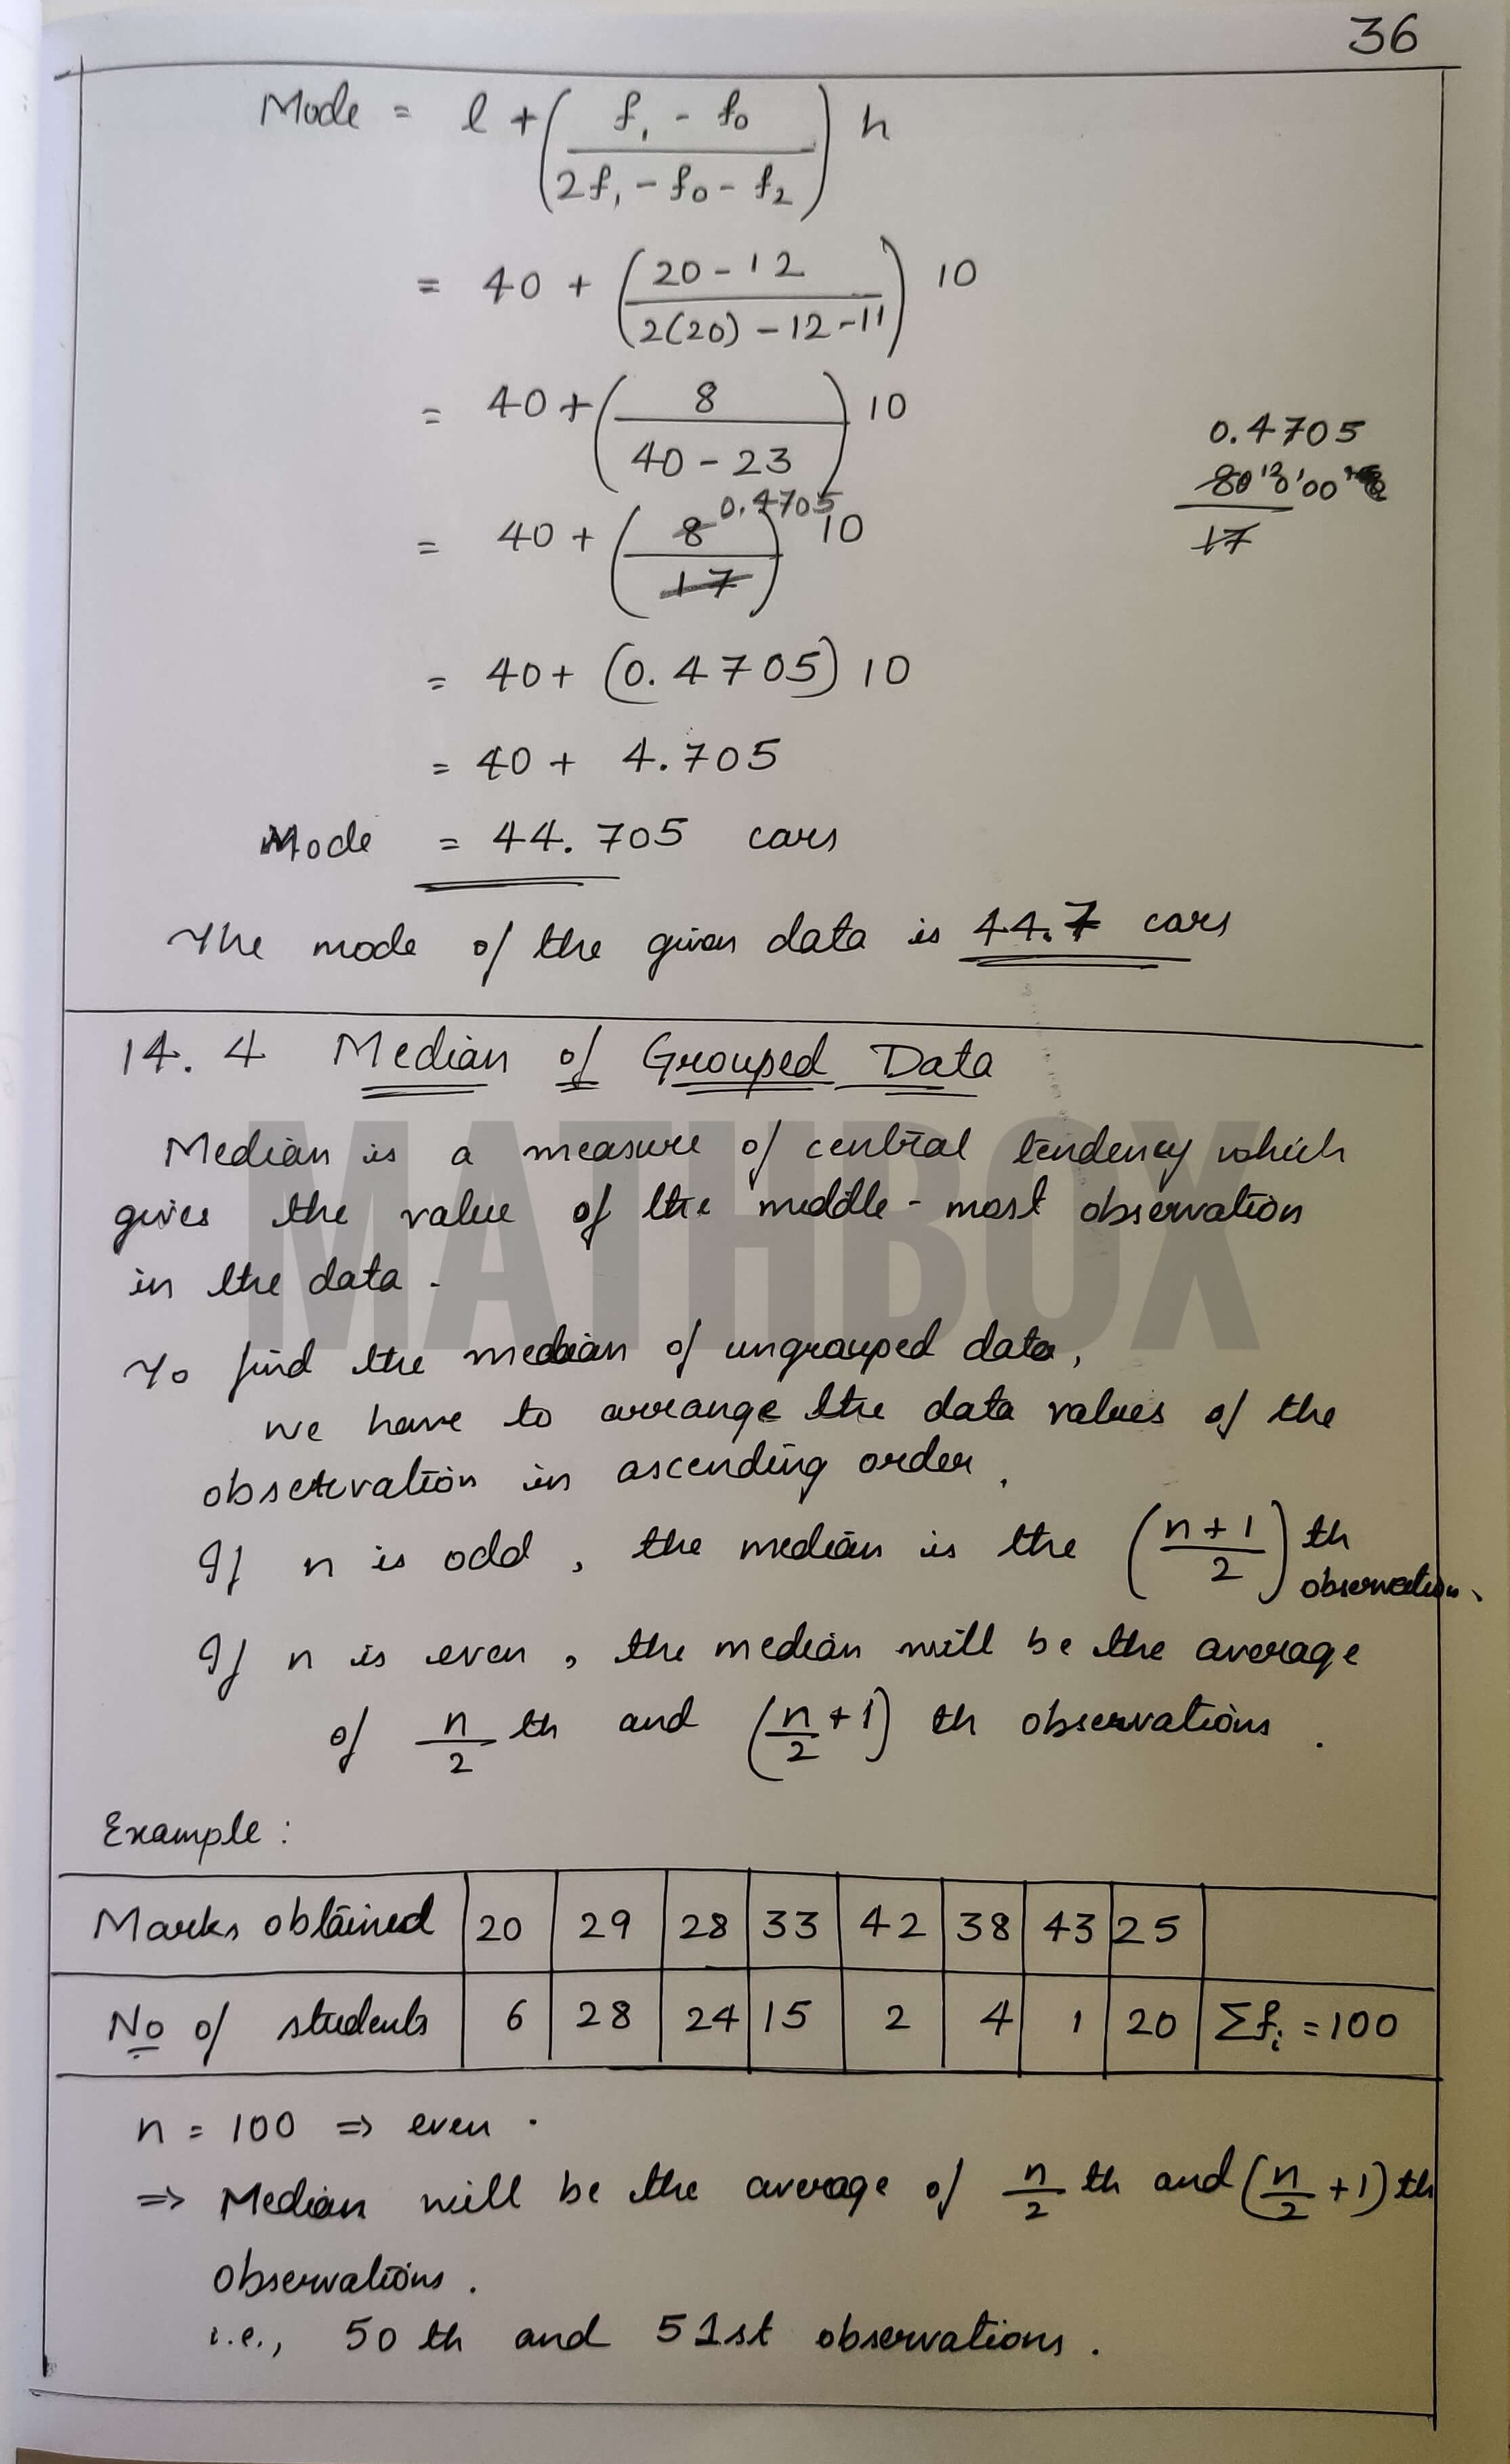 36
Mode = l + ( f₁ - f₀ / 2f₁ - f₀ - f₂ ) h
= 40 + ( 20 - 12 / 2(20) - 12 - 11 ) 10
= 40 + ( 8 / 40 - 23 ) 10
0.4705
= 40 + ( 8 / 17 ) 10 0.4705
17
= 40 + (0.4705) 10
= 40 + 4.705
Mode = 44.705 cars
The mode of the given data is 44.7 cars
14.4 Median of Grouped Data
MATHBOX
Median is a measure of central tendency which
gives the value of the middle-most observation
in the data.
To find the median of ungrouped data,
we have to arrange the data values of the
observation in ascending order.
If n is odd, the median is the ( n+1 / 2 ) th
observation.
If n is even, the median will be the average
of n/2 th and ( n/2 + 1 ) th observations.
Example:
Marks obtained 20 29 28 33 42 38 43 25
No of students 6 28 24 15 2 4 1 20 Σfᵢ = 100
n = 100 ⇒ even.
⇒ Median will be the average of n/2 th and ( n/2 + 1 ) th
observations.
i.e., 50 th and 51st observations.